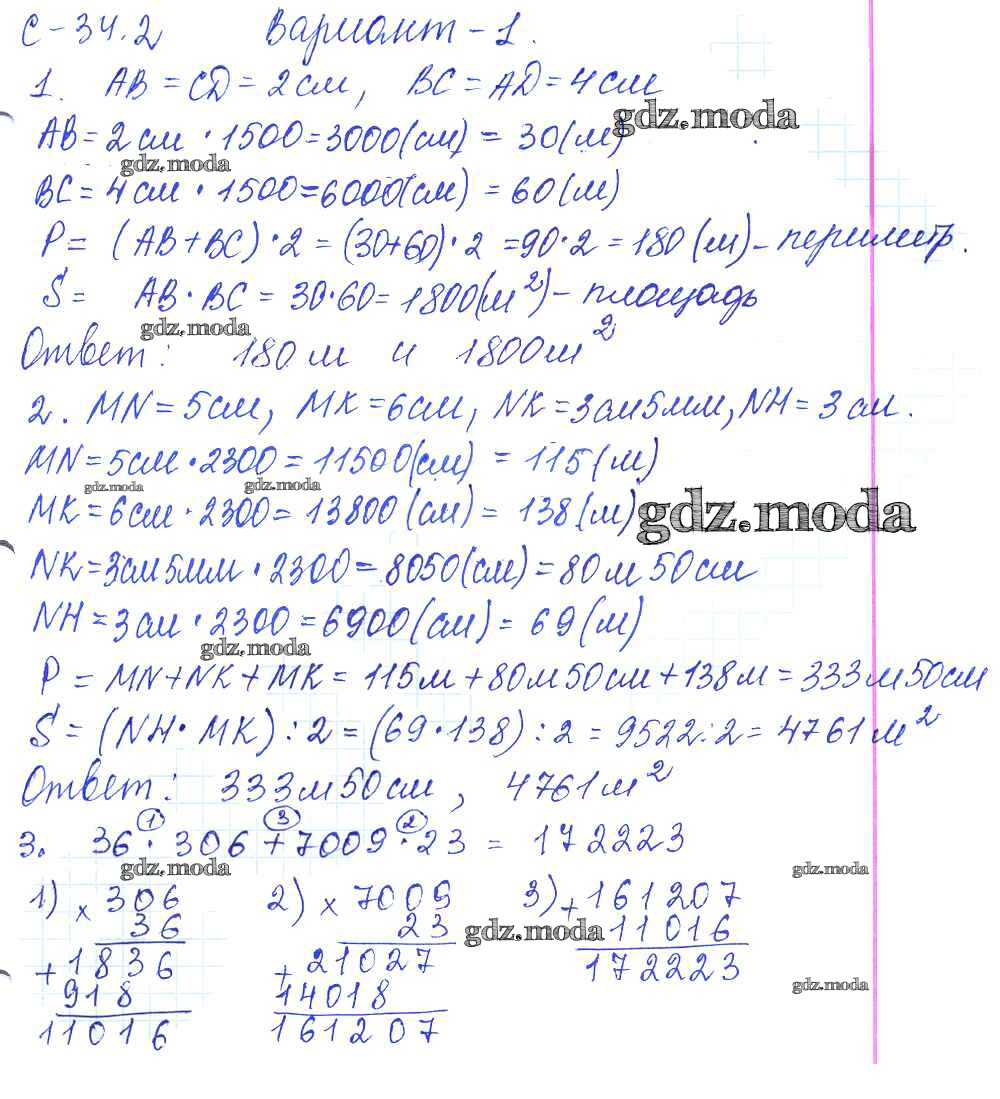 С-34.2 Вариант-1.
1. AB = CD = 2 см, BC = AD = 4 см
gdz.moda
AB = 2 см · 1500 = 3000 (см) = 30 (м)
gdz.moda
BC = 4 см · 1500 = 6000 (см) = 60 (м)
P = (AB + BC) · 2 = (30+60) · 2 = 90 · 2 = 180 (м) - периметр.
S = AB · BC = 30 · 60 = 1800 (м²) - площадь
gdz.moda
Ответ: 180 м и 1800 м²
2. MN = 5 см, MK = 6 см, NK = 3 см 5 мм, NH = 3 см.
MN = 5 см · 2300 = 11500 (см) = 115 (м)
gdz.moda gdz.moda
MK = 6 см · 2300 = 13800 (см) = 138 (м)
gdz.moda
NK = 3 см 5 мм · 2300 = 8050 (см) = 80 м 50 см
NH = 3 см · 2300 = 6900 (см) = 69 (м)
gdz.moda
P = MN + NK + MK = 115 м + 80 м 50 см + 138 м = 333 м 50 см
S = (NH · MK) : 2 = (69 · 138) : 2 = 9522 : 2 = 4761 м²
Ответ: 333 м 50 см, 4761 м²
1 3 2
3. 36 · 306 + 7009 · 23 = 172223
gdz.moda gdz.moda
1) × 306 2) × 7009 3) + 161207
36 23 gdz.moda 11016
+ 1836 + 21027 172223
918 14018 gdz.moda
11016 161207